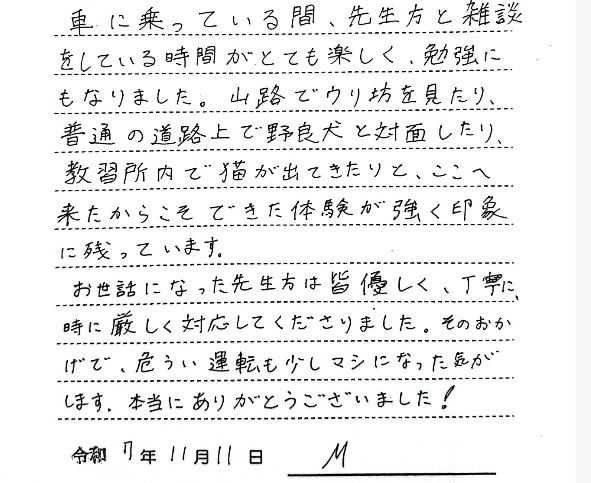 車に乗っている間、先生方と雑談
をしている時間がとても楽しく、勉強に
もなりました。山路でウリ坊を見たり、
普通の道路上で野良犬と対面したり、
教習所内で猫が出てきたりと、ここへ
来たからこそできた体験が強く印象
に残っています。
お世話になった先生方は皆優しく、丁寧に、
時に厳しく対応してくださりました。そのおか
げで、危うい運転も少しマシになった気が
します。本当にありがとうございました!
令和7年11月11日 M